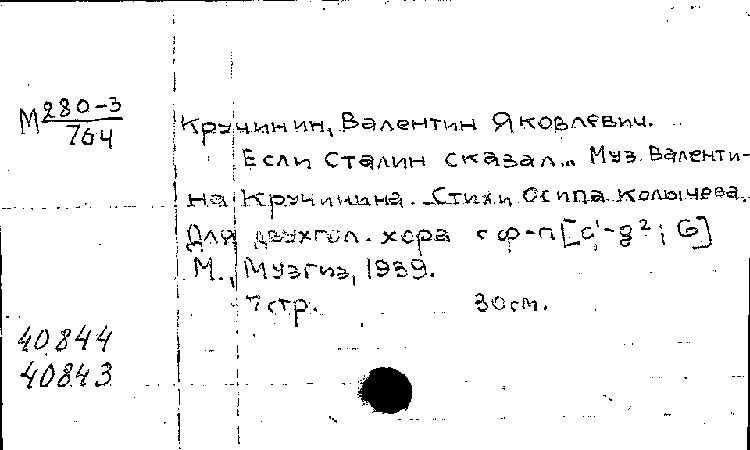 М 280-3
764
Кручинин, Валентин Яковлевич.
Если Сталин сказал... Муз. Валенти-
на Кручинина. Стихи Осипа Колычева.
Для двухгол. хора с ф-п [c¹-g²; G]
М., Музгиз, 1939.
7 стр. 30 см.
40844
40843